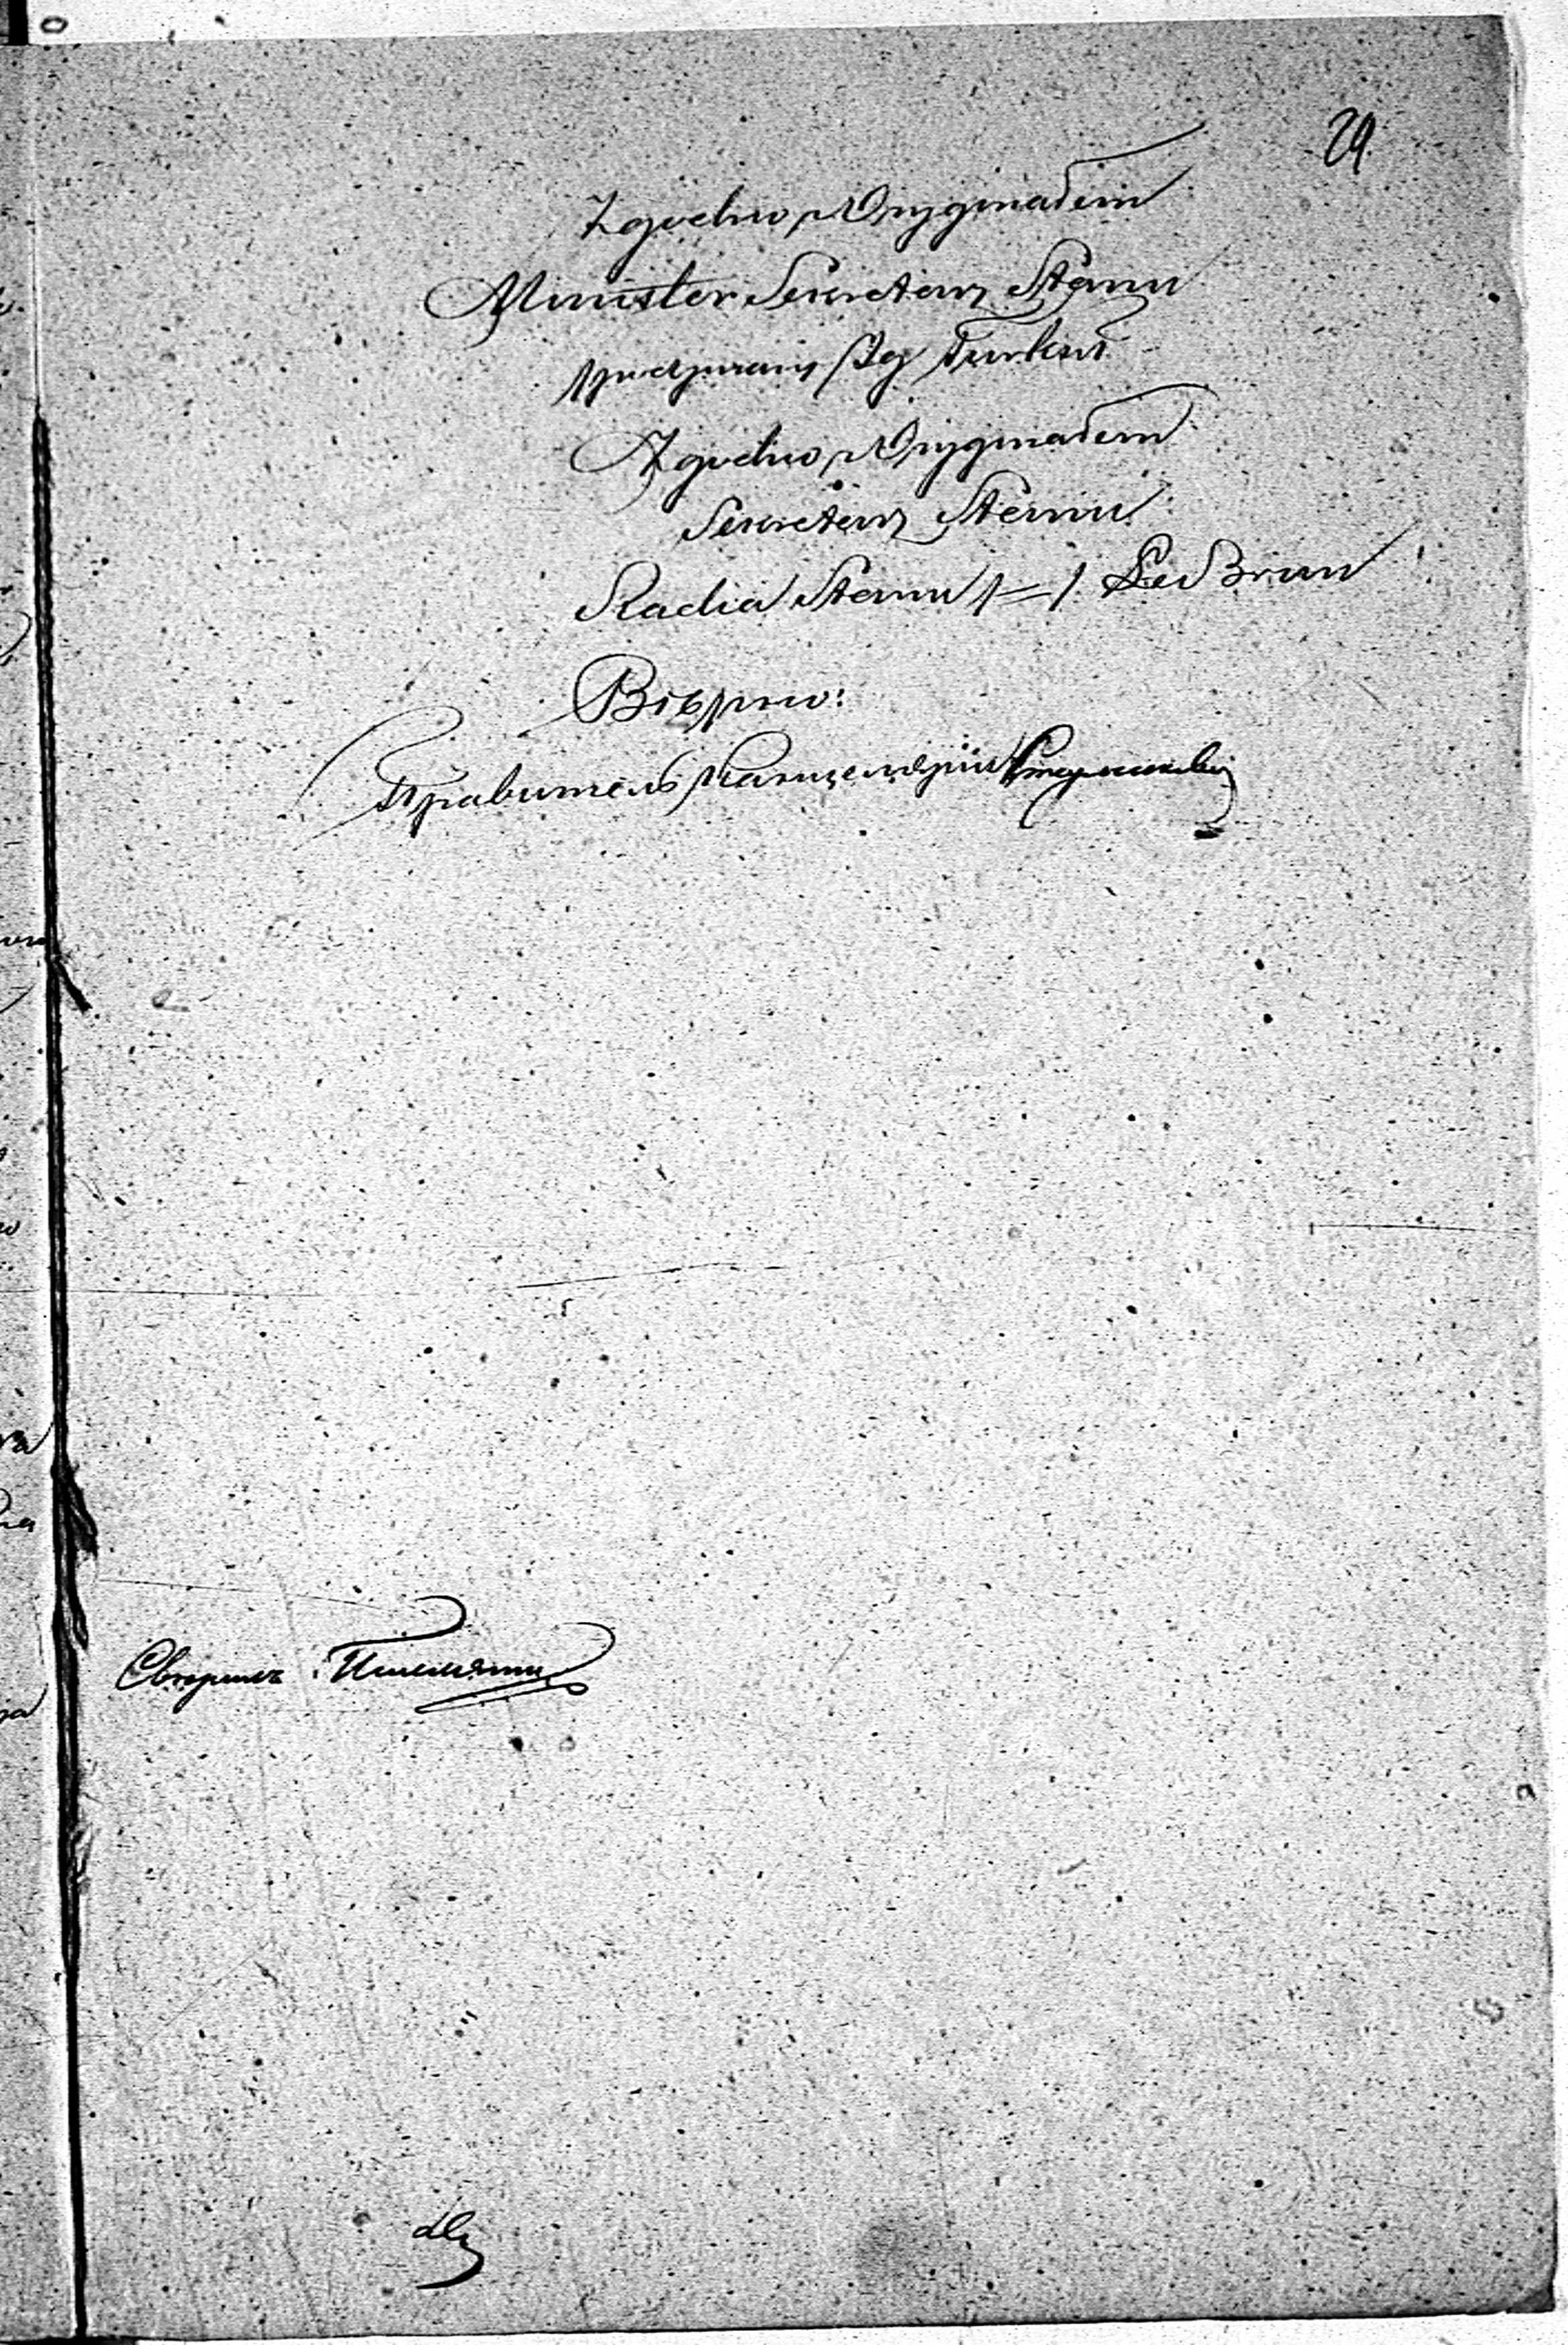 29.
Zgodno z Oryginałem
Minister Sekretarz Stanu
podpisany Ig Turkuł
Zgodno z Oryginałem
Sekretarz Stanu
Radca Stanu /=/ Le Brun
Вѣрно:
Правитель Канцеляріи
Свѣрилъ